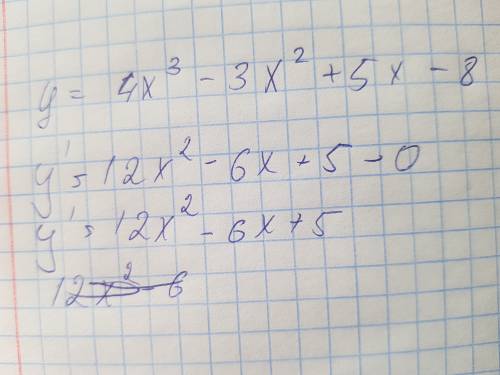 y = 4x³ - 3x² + 5x - 8
y' = 12x² - 6x + 5 - 0
y' = 12x² - 6x + 5
12x² - 6